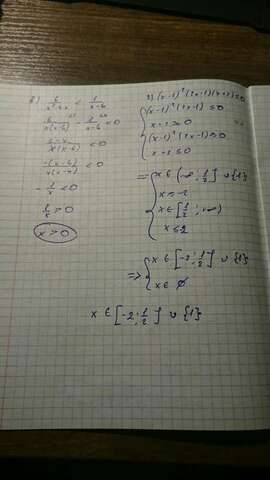 6/(x²-6x) < 1/(x-6)
6/(x(x-6)) - 1/(x-6) < 0
(6-x)/(x(x-6)) < 0
-(x-6)/(x(x-6)) < 0
- 1/x < 0
1/x > 0
x > 0
(x-1)²(2x-1)(x+2) ≤ 0
(x-1)²(2x-1) ≤ 0
x+2 ≥ 0
(x-1)²(2x-1) ≥ 0
x+2 ≤ 0
x ∈ (-∞; 1/2] ∪ {1}
x ∈ [1/2; ∞)
=> x ∈ [-2; 1/2] ∪ {1}
x ∈ ∅
x ∈ [-2; 1/2] ∪ {1}